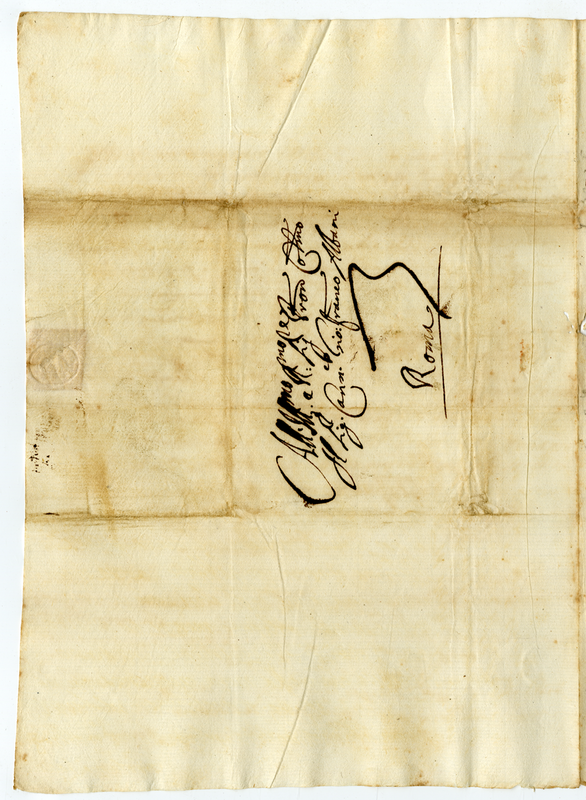 All: Ill.mo e R.mo Sig.r Pron Col.mo
Il Sig.r Can.co Gio: Franco Albani
Roma